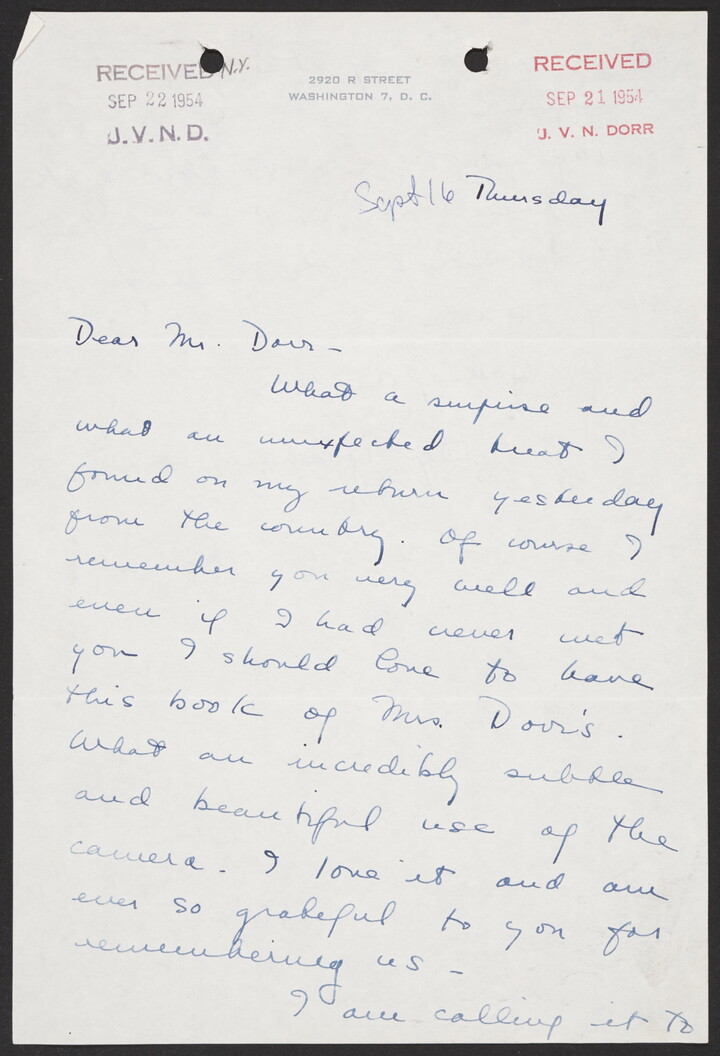 RECEIVED N.Y.
SEP 22 1954
J. V. N. D.
2920 R STREET
WASHINGTON 7, D. C.
RECEIVED
SEP 21 1954
J. V. N. DORR
Sept 16 Thursday
Dear Mr. Dorr –
What a surprise and
what an unexpected treat I
found on my return yesterday
from the country. Of course I
remember you very well and
even if I had never met
you I should love to have
this book of Mrs. Dorr's.
What an incredibly subtle
and beautiful use of the
camera. I love it and am
ever so grateful to you for
remembering us –
I am calling it to